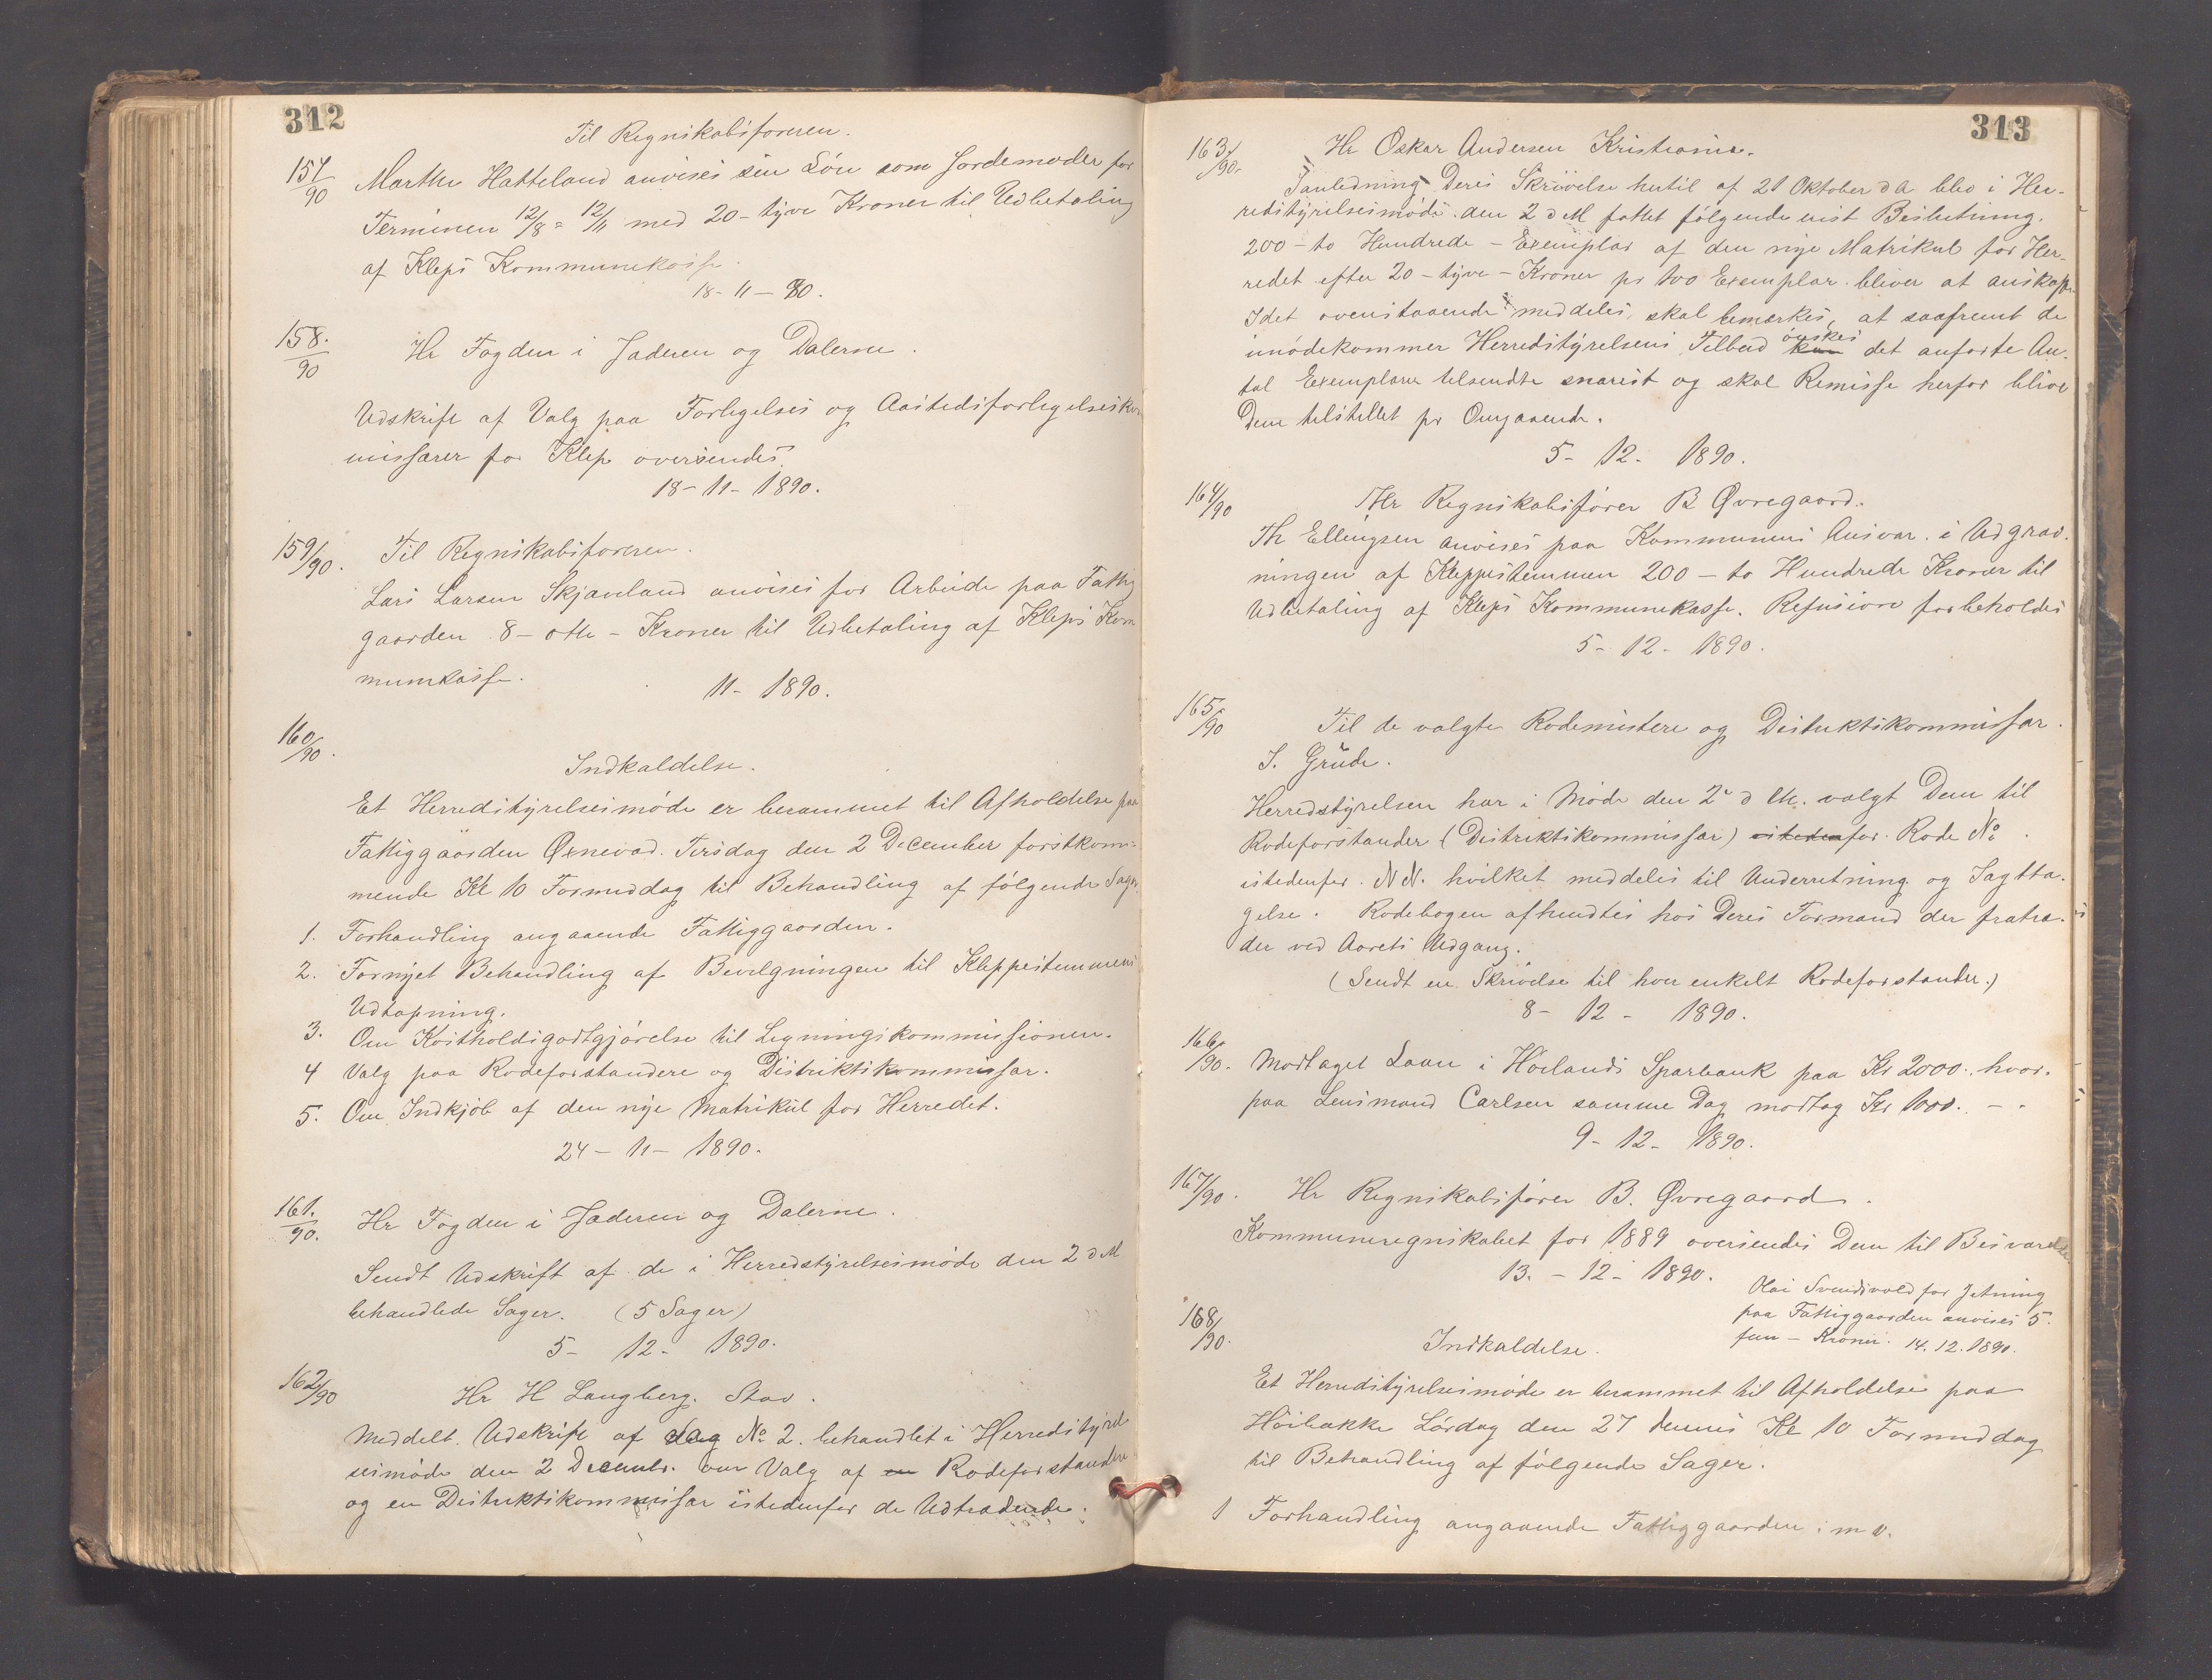 312
Til Regnskabsføreren.
157/90 Marthe Hatteland anvises sin Løn som Jordemoder for
Terminen 12/8 = 12/11 med 20 - tyve Kroner til Udbetaling
af Kleps Kommunekasse.
18 - 11 - 90.
158./90 Hr Fogden i Jæderen og Dalerne.
Udskrift af Valg paa Forligelses og Aastedsforligelsesko
missærer for Klep oversendes.
18 - 11 - 1890.
159/90. Til Regnskabsføreren.
Lars Larsen Skjæveland anvises for Arbeide paa Fattig
gaarden 8 - otte - Kroner til Udbetaling af Kleps Kom
munekasse.
11 - 1890.
160/90.
Indkaldelse.
Et Herredstyrelsesmøde er berammet til Afholdelse paa
Fattiggaarden Øxnevad. Tirsdag den 2 December førstkom-
mende Kl 10 Formiddag til Behandling af følgende Sager.
1. Forhandling angaaende Fattiggaarden.
2. Fornyet Behandling af Bevilgningen til Kleppestemmens
Udtapning.
3. Om Kostholdsgodtgjørelse til Ligningskommissionen.
4 Valg paa Rodeforstandere og Distriktskommissær.
5. Om Indkjøb af den nye Matrikul for Herredet.
24 - 11 - 1890.
161./90. Hr Fogden i Jæderen og Dalerne.
Sendt Udskrift af de i Herredstyrelsesmøde den 2 d M
behandlede Sager. (5 Sager)
5 - 12 - 1890.
162/90 Hr H Langberg. Stav.
Meddelt. Udskrift af Sag No 2. behandlet i Herredstyrel
sesmøde den 2 Decembr. om Valg af en Rodeforstandere
og en Distriktskommissær istedenfor de Udtrædende.
313
163/90. Hr Oskar Andersen Kristiania.
I anledning Deres Skrivelse hertil af 21 Oktober d A blev i Her-
redstyrelsesmøde den 2 d M fattet følgende enst Beslutning.
200 - to Hundrede - Exemplar af den nye Matrikul for Her-
redet efter 20 - tyve - Kroner pr 100 Exemplar bliver at anskaffe.
Idet ovenstaaende meddeles, skal bemærkes, at saafremt de
imødekommer Herredstyrelsens Tilbud ønskes
kan det anførte An-
tal Exemplarer tilsendte snarest og skal Remisse herfor blive
Dem tilstillet pr Omgaaende.
5 - 12 - 1890.
164/90 Hr Regnskabsfører B Øvregaard.
Th Ellingsen anvises paa Kommunens Ansvar i Udgrav-
ningen af Kleppestemmen 200 - to Hundrede Kroner til
Udbetaling af Kleps Kommunekasse. Refusion forbeholdes
5 - 12 - 1890.
165/90 Til de valgte Rodemestere og Distriktskommissær.
S. Grude.
Herredstyrelsen har i Møde den 2 d M. valgt Dem til
Rodeforstander (Distriktskommissær) istedenfor Rode No .
istedenfor. N N. hvilket meddeles til Underretning og Iagtta-
gelse. Rodebogen afhentes hos Deres Formand der fratræ-
der ved Aarets Udgang.
(Sendt en Skrivelse til hver enkelt Rodeforstander.)
8 - 12 - 1890.
166/90. Modtaget Laan i Høilands Sparbank paa Kr 2000. hvor-
paa Lensmand Carlsen samme Dag modtog Kr 1000. - .
9 - 12 - 1890.
167/90. Hr Regnskabsfører B. Øvregaard.
Kommuneregnskabet for 1889 oversendes Dem til Besvarelse
13. - 12 - 1890.
Svendsvold for Jetning
paa Fattiggaarden anvises 5.
fem - Kroner. 14. 12. 1890.
168/90.
Indkaldelse.
Et Herredstyrelsesmøde er berammet til Afholdelse paa
Høibakke Lørdag den 27 dennes Kl 10 Formiddag
til Behandling af følgende Sager.
1 Forhandling angaaende Fattiggaarden m v.